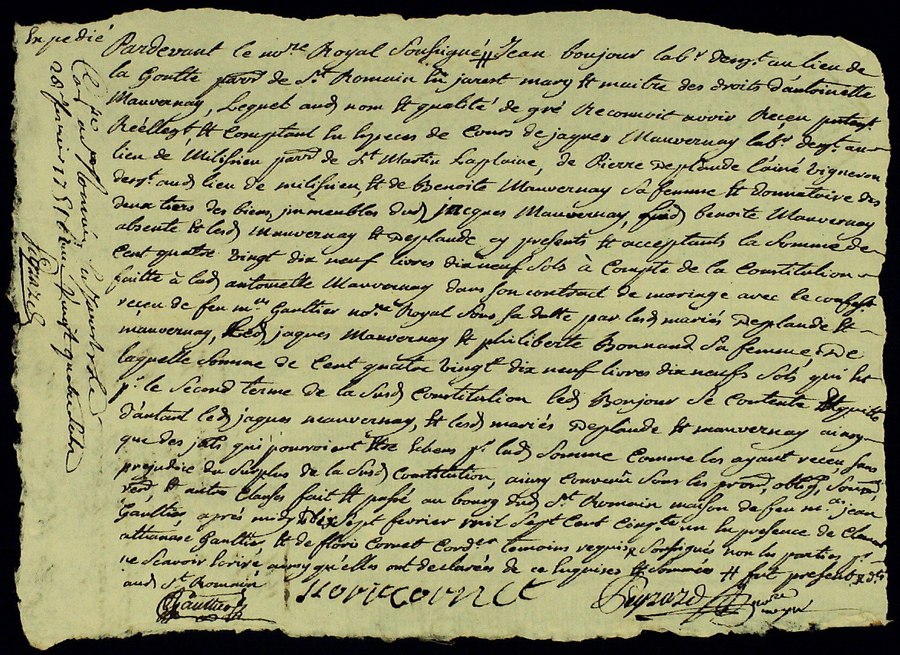 Expedié
Pardevant le no.re Royal Soussigné # Jean bonjour lab.r deng.t au lieu de
la Goutte parr.e de S.t Romain En jarest mary & maitre des droits d'antoinette
Mauvernay, Lequel aud nom & qualité de gré Reconnoit avoir Receu
Réellem.t & Comptant En Especes de Cours de jaques Mauvernay lab.r deng.t au
lieu de Milisieu parr.e de S.t Martin Laplaine, de Pierre Deplaude l'ainé Vigneron
deng.t aud lieu de milisieu & de Benoite Mauvernay Sa femme & donnataire des
deux tiers des biens immeubles dud jacques Mauvernay, benoite Mauvernay
absente & led Mauvernay & Deplaude cy presents & acceptants la Somme de
Cent quatre vingt dix neuf livres dix neuf Sols à Compte de la Constitution
faitte à lad antoinette Mauvernay dans son contract de mariage avec le
reçu de feu m.re Gaultier no.re Royal Sous sa datte par lesd mariés Deplaude &
mauvernay, led jaques Mauvernay & philiberte Bonnand Sa femme, De
laquelle Somme de Cent quatre vingt dix neuf livres dix neufs Sols qui est
p.r le Second terme de la Susd Constitution led Bonjour Se Contente & quitte
d'autant led jaques mauvernay, & lesd mariés Deplaude & mauvernay ainsy
que des qui pourroient de biens p.r lad Somme Comme les ayant receu Sans
prejudice du Surplus de la Susd Constitution, ainsy Convenu Sous les prom, oblig,
& autres Clauses fait & passé au bourg dud S.t Romain maison de feu m.e jean
Gaultier après midy Dix Sept fevrier mil Sept Cent Cinq.te un En presence de Clement
athanase Gaultier & de flori Cornet Cord.er temoins requis Soussignés non les parties p.r
ne Scavoir Ecrire ainsy qu'elles ont déclarés de ce Enquises & Sommées # fut present
aud S.t Romain
Gaulthier
floricornet
Peyrard no.re
Con.lé a
26 fevrier 1751 Reçu vingt quatre sols